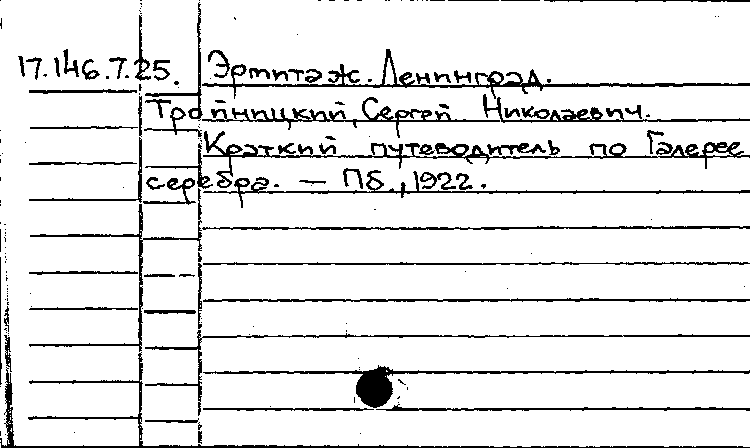 17.146.7.25. Эрмитаж. Ленинград.
Тройницкий, Сергей Николаевич.
Краткий путеводитель по Галерее
серебра. — Пб., 1922.